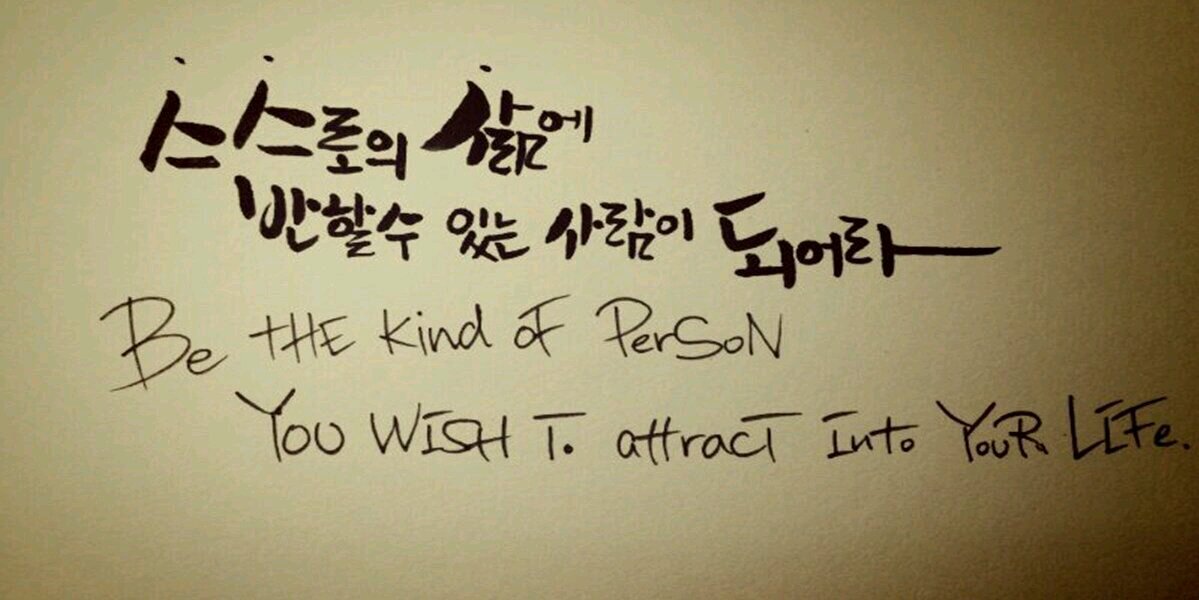 스스로의 삶에
반할수 있는 사람이 되어라
Be THE kind oF PerSoN
You WISH To attracT Into YouR LIFe.